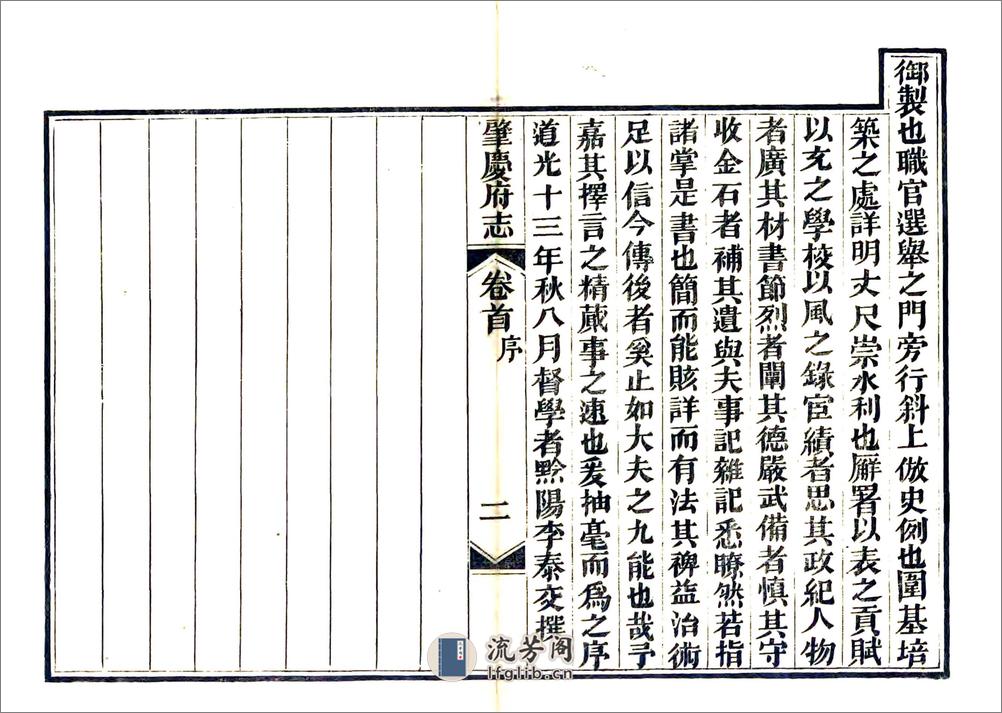 御製也職官選舉之門旁行斜上倣史例也圍基培
築之處詳明丈尺崇水利也廨署以表之貢賦
以充之學校以風之錄宦績者思其政紀人物
者廣其材書節烈者闡其德嚴武備者慎其守
收金石者補其遺與夫事記雜記悉瞭然若指
諸掌是書也簡而能賅詳而有法其裨益治術
足以信今傳後者奚止如大夫之九能也哉予
嘉其擇言之精蕆事之速也爰抽毫而為之序
道光十三年秋八月督學者黔陽李泰交撰
肇慶府志
卷首
序
二
流芳阁
lfglib.cn